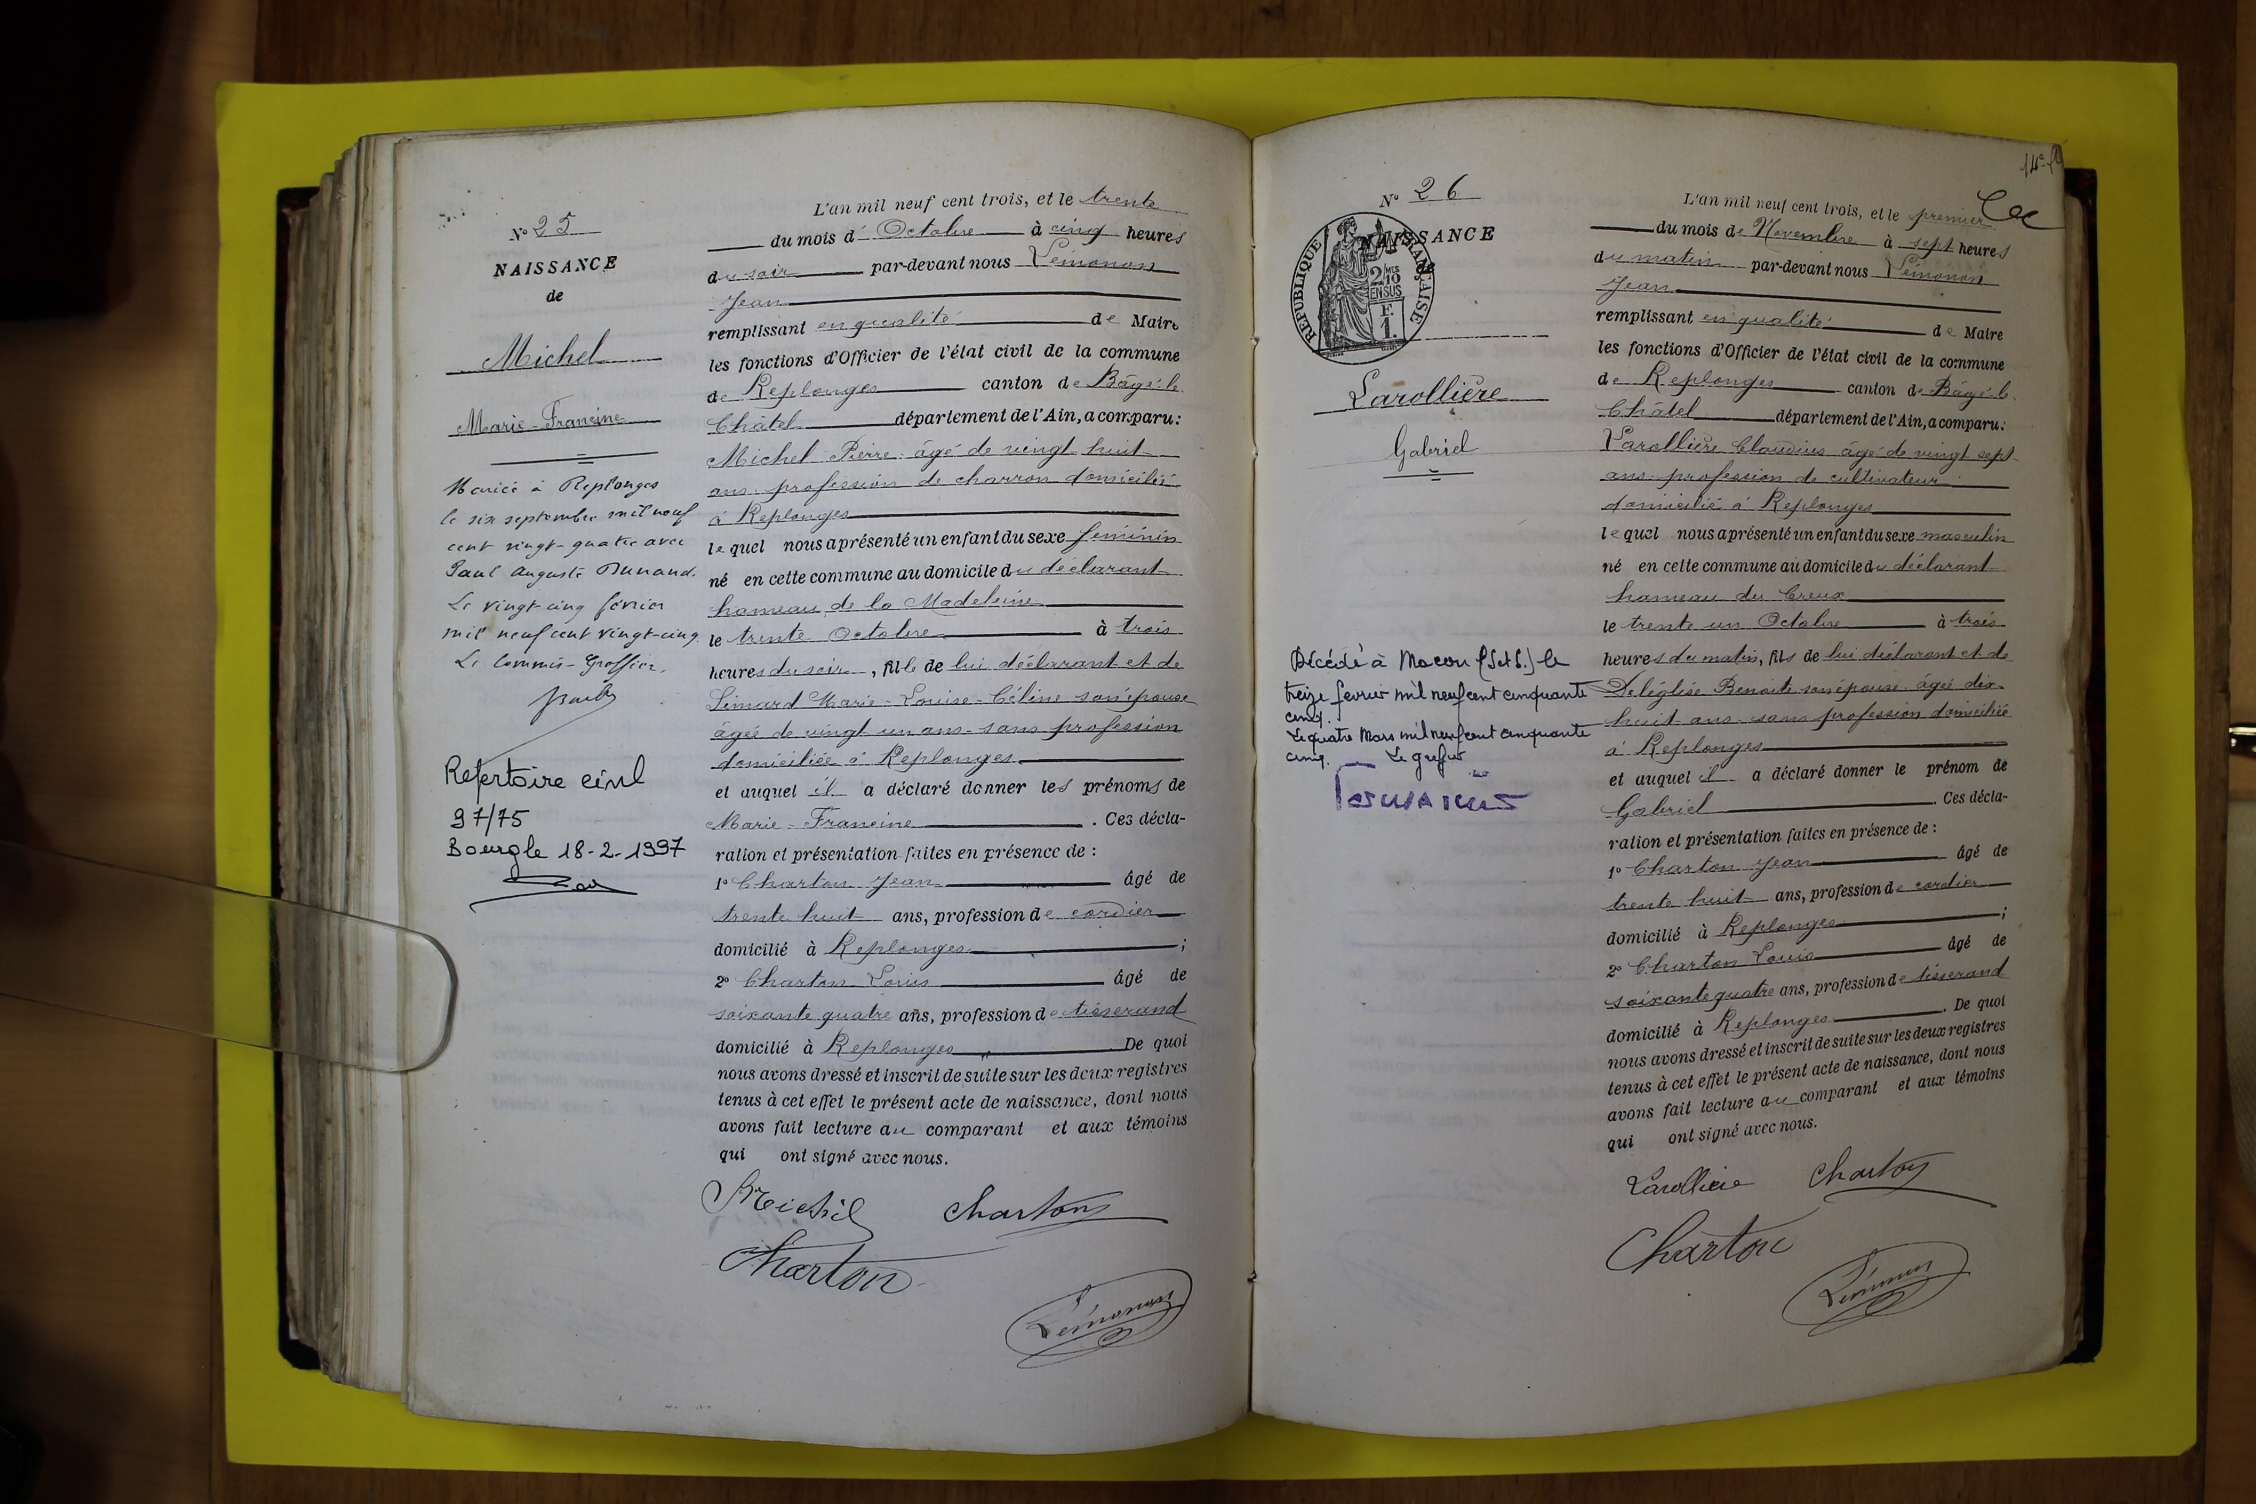 N° 25
NAISSANCE
de
Michel
Marie-Francine
Mariée à Replonges
le six septembre mil neuf
cent vingt-quatre avec
Paul Auguste Dunand.
Le vingt-cinq février
mil neuf cent vingt-cinq
Le Commis-Greffier,
Repertoire civil
97/75
Bourg le 18-2-1997
L'an mil neuf cent trois, et le trente
du mois d'Octobre à cinq heures
du soir par-devant nous Lémonon
Jean
remplissant en qualité de Maire
les fonctions d'Officier de l'état civil de la commune
de Replonges canton de Bâgé-le
Châtel département de l'Ain, a comparu:
Michel Pierre âgé de vingt huit
ans profession de charron domicilié
à Replonges
lequel nous a présenté un enfant du sexe féminin
né en cette commune au domicile du déclarant
hameau de la Madeleine
le trente Octobre à trois
heures du soir, fille de lui déclarant et de
Simard Marie-Louise-Céline son épouse
âgée de vingt un ans sans profession
domiciliée à Replonges
et auquel il a déclaré donner les prénoms de
Marie-Francine. Ces décla-
ration et présentation faites en présence de:
1° Charton Jean âgé de
trente huit ans, profession de cordier
domicilié à Replonges;
2° Charton Louis âgé de
soixante quatre ans, profession de tisserand
domicilié à Replonges De quoi
nous avons dressé et inscrit de suite sur les deux registres
tenus à cet effet le présent acte de naissance, dont nous
avons fait lecture au comparant et aux témoins
qui ont signé avec nous.
Michel Charton
Charton
Lémonon
14e f.
N° 26
NAISSANCE
REPUBLIQUE FRANÇAISE
2/10 EN SUS
F. 1.
Larollière
Gabriel
Décédé à Macon (S et L.) le
treize fevrier mil neuf cent cinquante
cinq.
Le quatre Mars mil neuf cent cinquante
cinq. Le greffier
L'an mil neuf cent trois, et le premier
du mois de Novembre à sept heures
du matin par-devant nous Lémonon
Jean
remplissant en qualité de Maire
les fonctions d'Officier de l'état civil de la commune
de Replonges canton de Bâgé-le
Châtel département de l'Ain, a comparu:
Larollière Claudius âgé de vingt sept
ans profession de cultivateur
domicilié à Replonges
lequel nous a présenté un enfant du sexe masculin
né en cette commune au domicile du déclarant
hameau du Creux
le trente un Octobre à trois
heures du matin, fils de lui déclarant et de
Deléglise Benoite son épouse âgée dix-
huit ans sans profession domiciliée
à Replonges
et auquel il a déclaré donner le prénom de
Gabriel. Ces décla-
ration et présentation faites en présence de:
1° Charton Jean âgé de
trente huit ans, profession de cordier
domicilié à Replonges;
2° Charton Louis âgé de
soixante quatre ans, profession de tisserand
domicilié à Replonges. De quoi
nous avons dressé et inscrit de suite sur les deux registres
tenus à cet effet le présent acte de naissance, dont nous
avons fait lecture au comparant et aux témoins
qui ont signé avec nous.
Larollière Charton
Charton
Lémonon